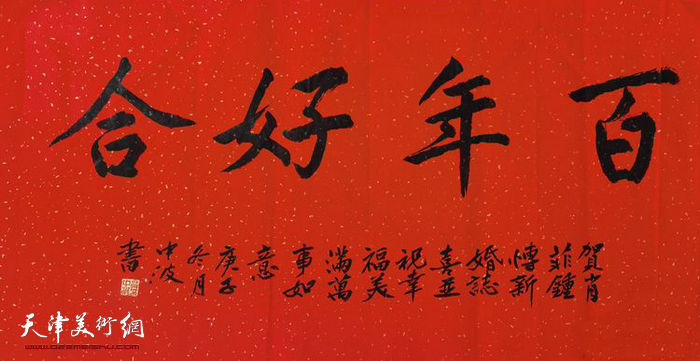 百年好合
賀肖
菲鍾
愽新
婚誌
喜並
祝幸
福美
滿萬
事如
意
庚子
冬月
中波
書
天津美術網